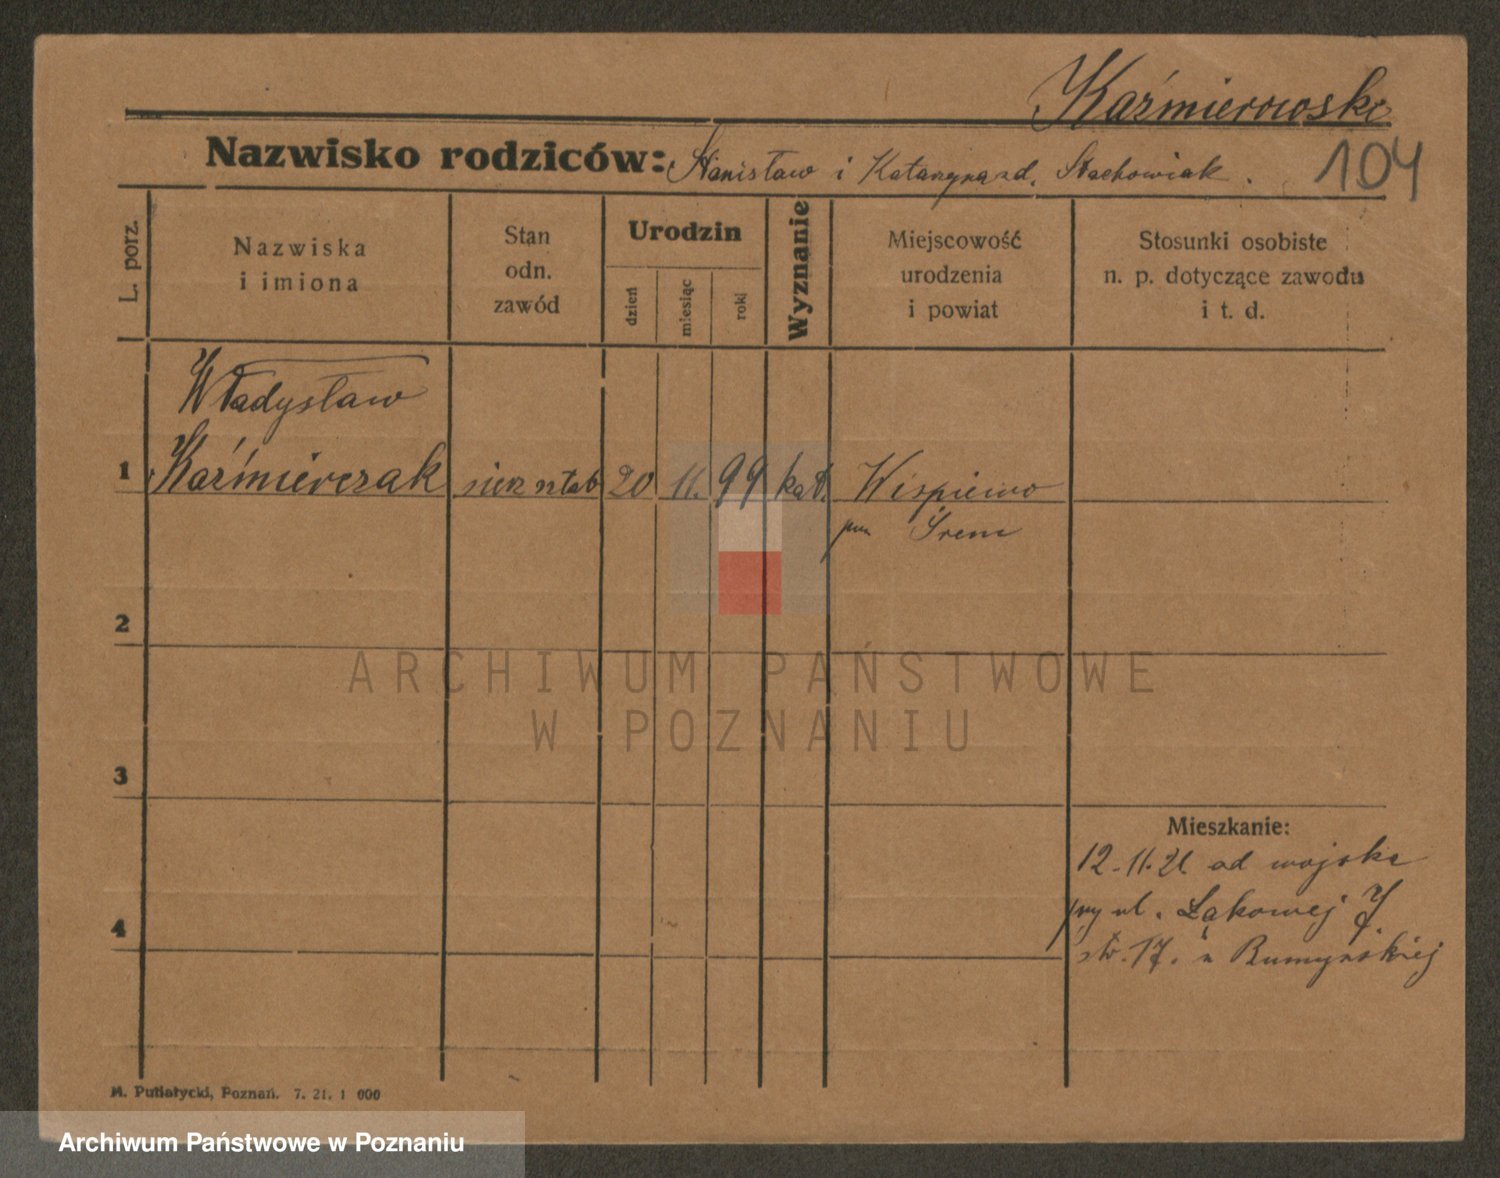 Kaźmierowski
Nazwisko rodziców: Stanisław i Katarzyna zd. Stachowiak.
104
L. porz.
Nazwiska
i imiona
Stan
odn.
zawód
Urodzin
dzień
miesiąc
rok
Wyznanie
Miejscowość
urodzenia
i powiat
Stosunki osobiste
n. p. dotyczące zawodu
i t. d.
Władysław
1 Kaźmierczak sierż sztab 20 11. 99 kat. Wispiewo
pow Śrem
2
3
4
Mieszkanie:
12.11.21 od wojska
przy ul. Łąkowej 7
st. 17. u Rumyńskiej
M. Putiatycki, Poznań. 7. 21. 1 000
ARCHIWUM PAŃSTWOWE
W POZNANIU
Archiwum Państwowe w Poznaniu